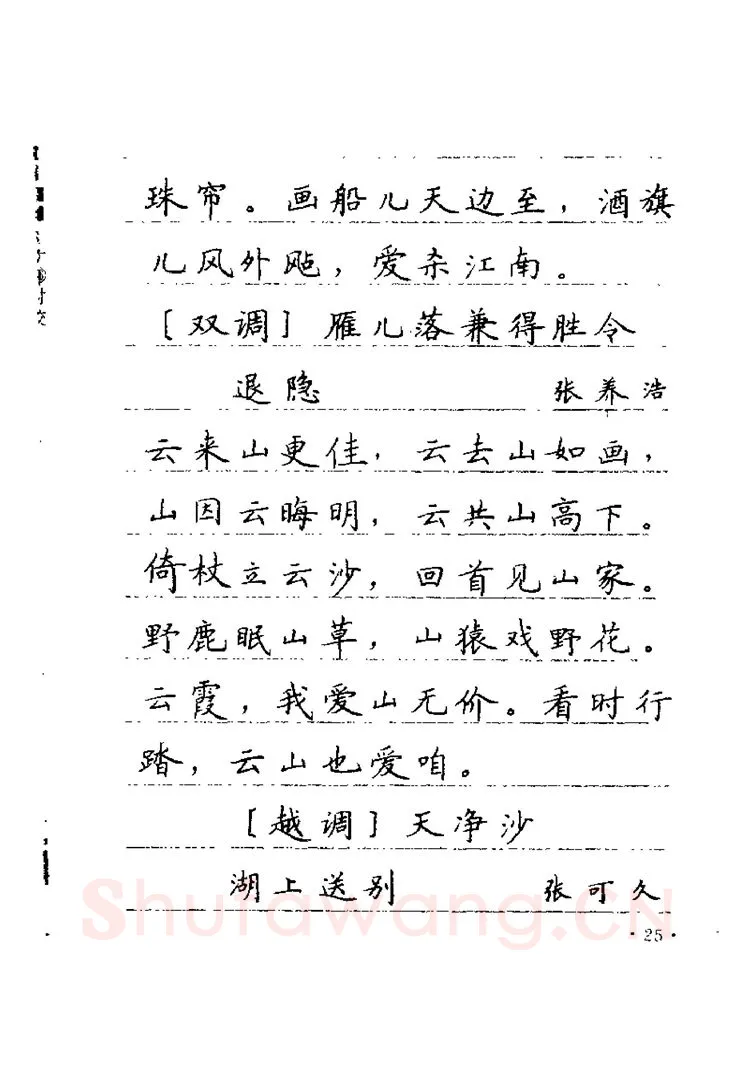 珠帘。画船儿天边至，酒旗
儿风外飐，爱杀江南。
［双调］雁儿落兼得胜令
退隐 张养浩
云来山更佳，云去山如画，
山因云晦明，云共山高下。
倚杖立云沙，回首见山家。
野鹿眠山草，山猿戏野花。
云霞，我爱山无价。看时行
踏，云山也爱咱。
［越调］天净沙
湖上送别 张可久
Shufawang.CN
·25·